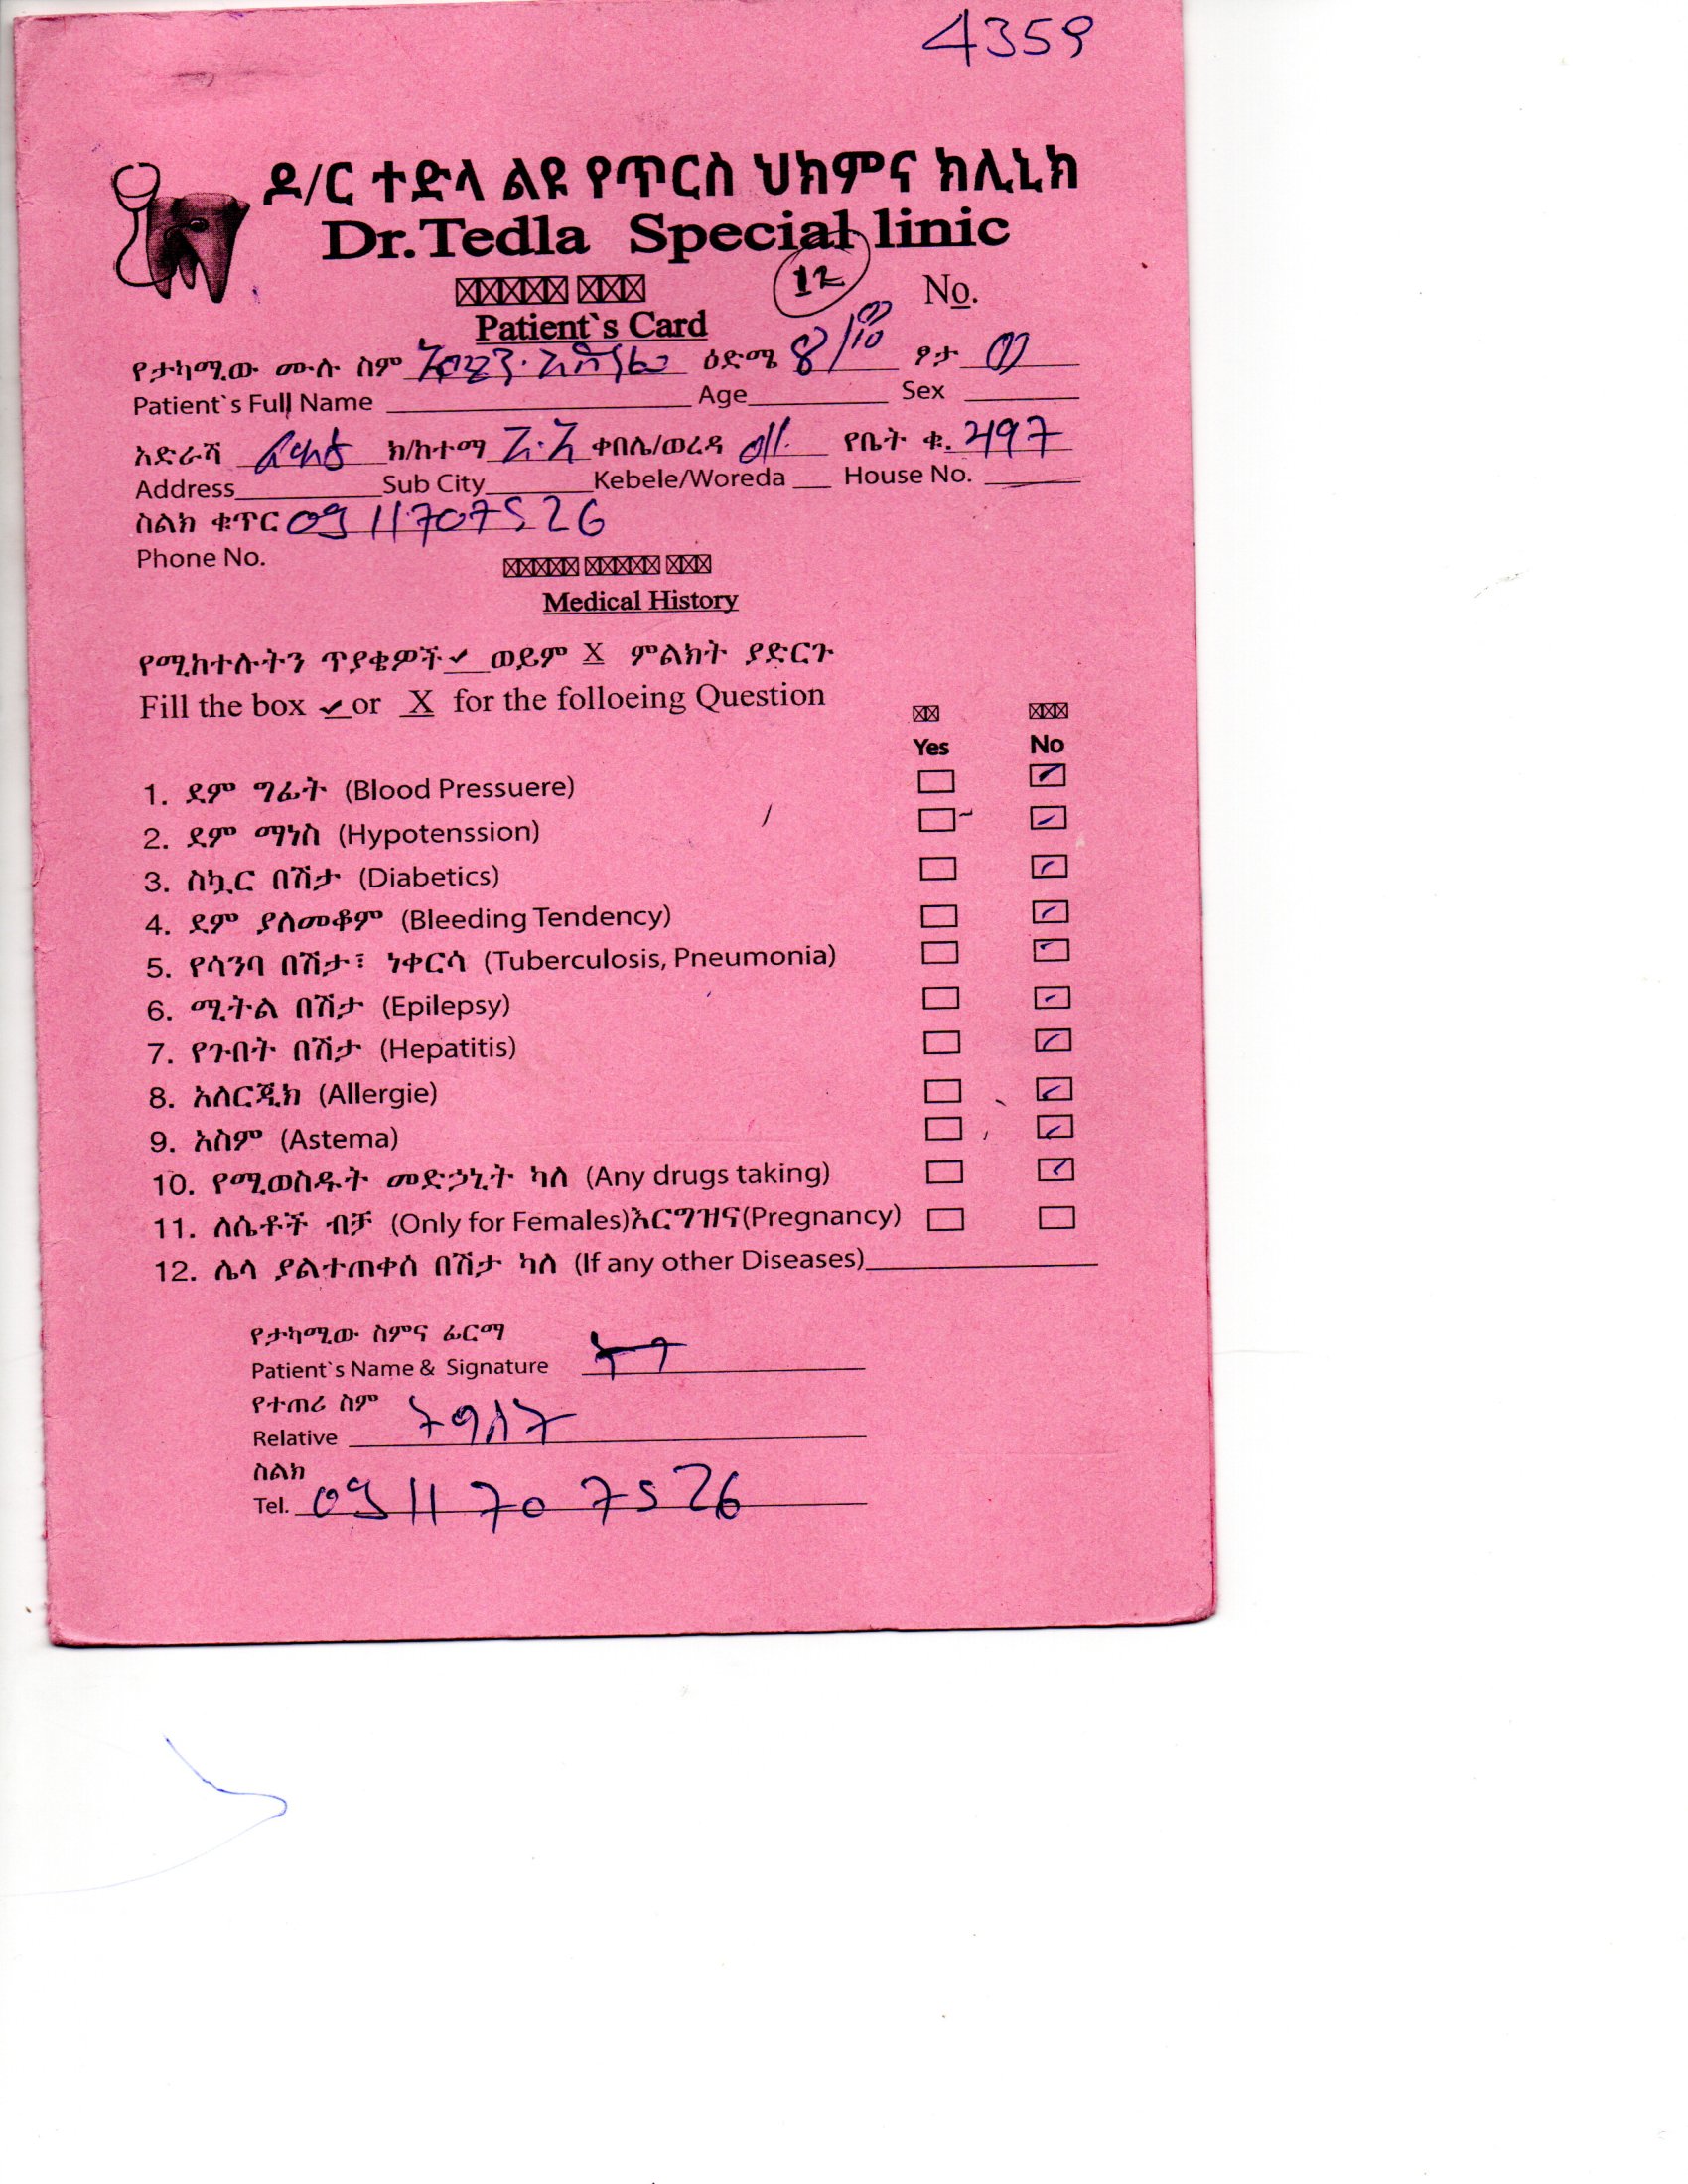 4359
ዶ/ር ተድላ ልዩ የጥርስ ህክምና ክሊኒክ
Dr.Tedla Special linic
12 No.
Patient`s Card
የታካሚው ሙሉ ስም ዕድሜ 8/10 ፆታ
Patient`s Full Name Age Sex
አድራሻ ክ/ከተማ ቀበሌ/ወረዳ የቤት ቁ. 2197
Address Sub City Kebele/Woreda House No.
ስልክ ቁጥር 0911707526
Phone No.
Medical History
የሚከተሉትን ጥያቄዎች ✓ ወይም X ምልክት ያድርጉ
Fill the box ✓ or X for the folloeing Question
Yes No
1. ደም ግፊት (Blood Pressuere)
2. ደም ማነስ (Hypotenssion)
3. ስኳር በሽታ (Diabetics)
4. ደም ያለመቆም (Bleeding Tendency)
5. የሳንባ በሽታ፣ ነቀርሳ (Tuberculosis, Pneumonia)
6. ሚትል በሽታ (Epilepsy)
7. የጉበት በሽታ (Hepatitis)
8. አለርጂክ (Allergie)
9. አስም (Astema)
10. የሚወስዱት መድኃኒት ካለ (Any drugs taking)
11. ለሴቶች ብቻ (Only for Females)እርግዝና(Pregnancy)
12. ሌላ ያልተጠቀሰ በሽታ ካለ (If any other Diseases)
የታካሚው ስምና ፊርማ
Patient`s Name & Signature
የተጠሪ ስም
Relative ትግስት
ስልክ
Tel. 0911707526